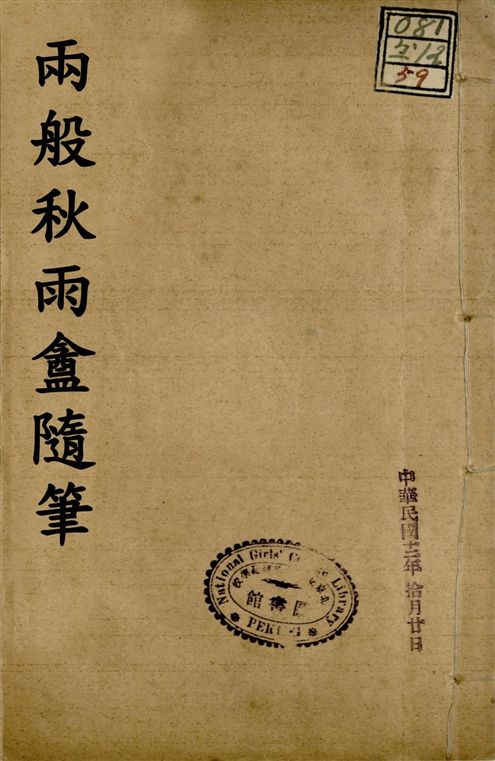 兩般秋雨盦隨筆
081
512
59
中華民國十二年拾月廿日
National Girls' Library
圖書館
PEK